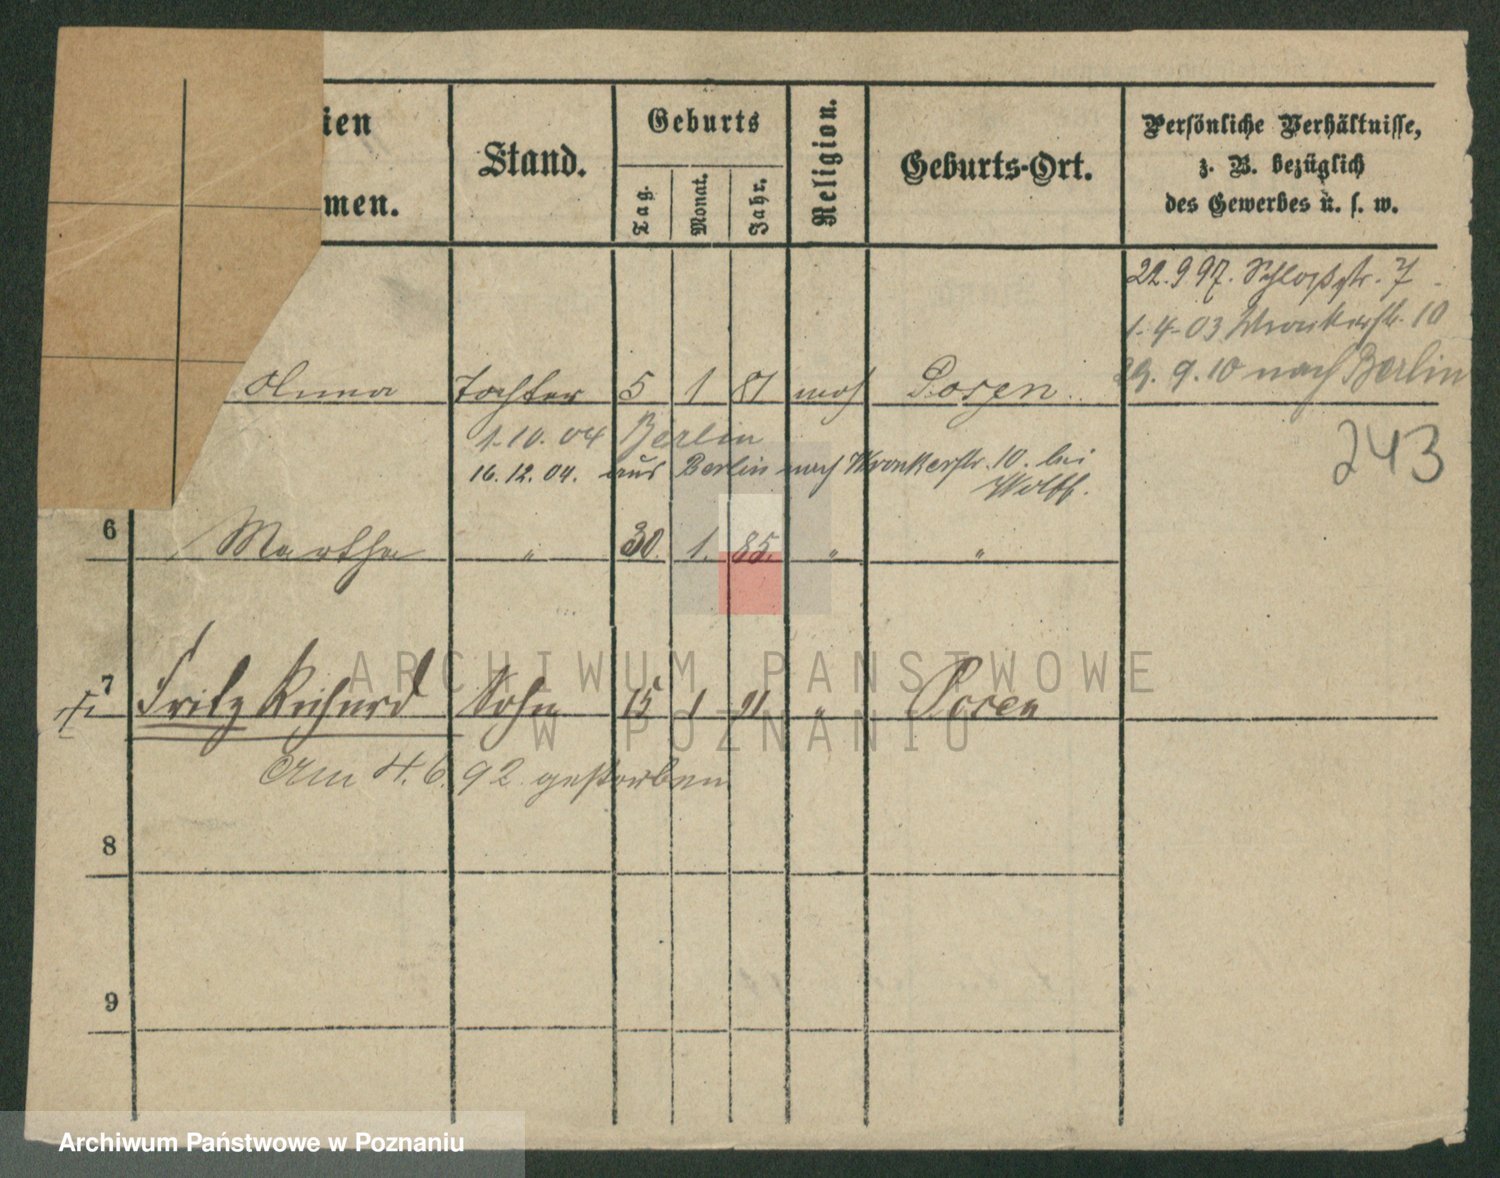 ien
men.
Stand.
Geburts
Tag.
Monat.
Jahr.
Religion.
Geburts-Ort.
Persönliche Verhältnisse,
z. B. bezüglich
des Gewerbes u. s. w.
22.9 97. Schloßstr. 7
1.4-03 Wronkerstr. 10
29. 9. 10 nach Berlin
243
Anna Tochter 5 1 81 mos Posen
1.10.04 Berlin
16.12.04. aus Berlin nach Wronkerstr. 10. bei
Wolff.
6 Martha " 30. 1. 85. " "
7 Fritz Richard Sohn 15 1 91 " Posen
Am 4.6.92 gestorben
8
9
ARCHIWUM PANSTWOWE
W POZNANIU
Archiwum Państwowe w Poznaniu